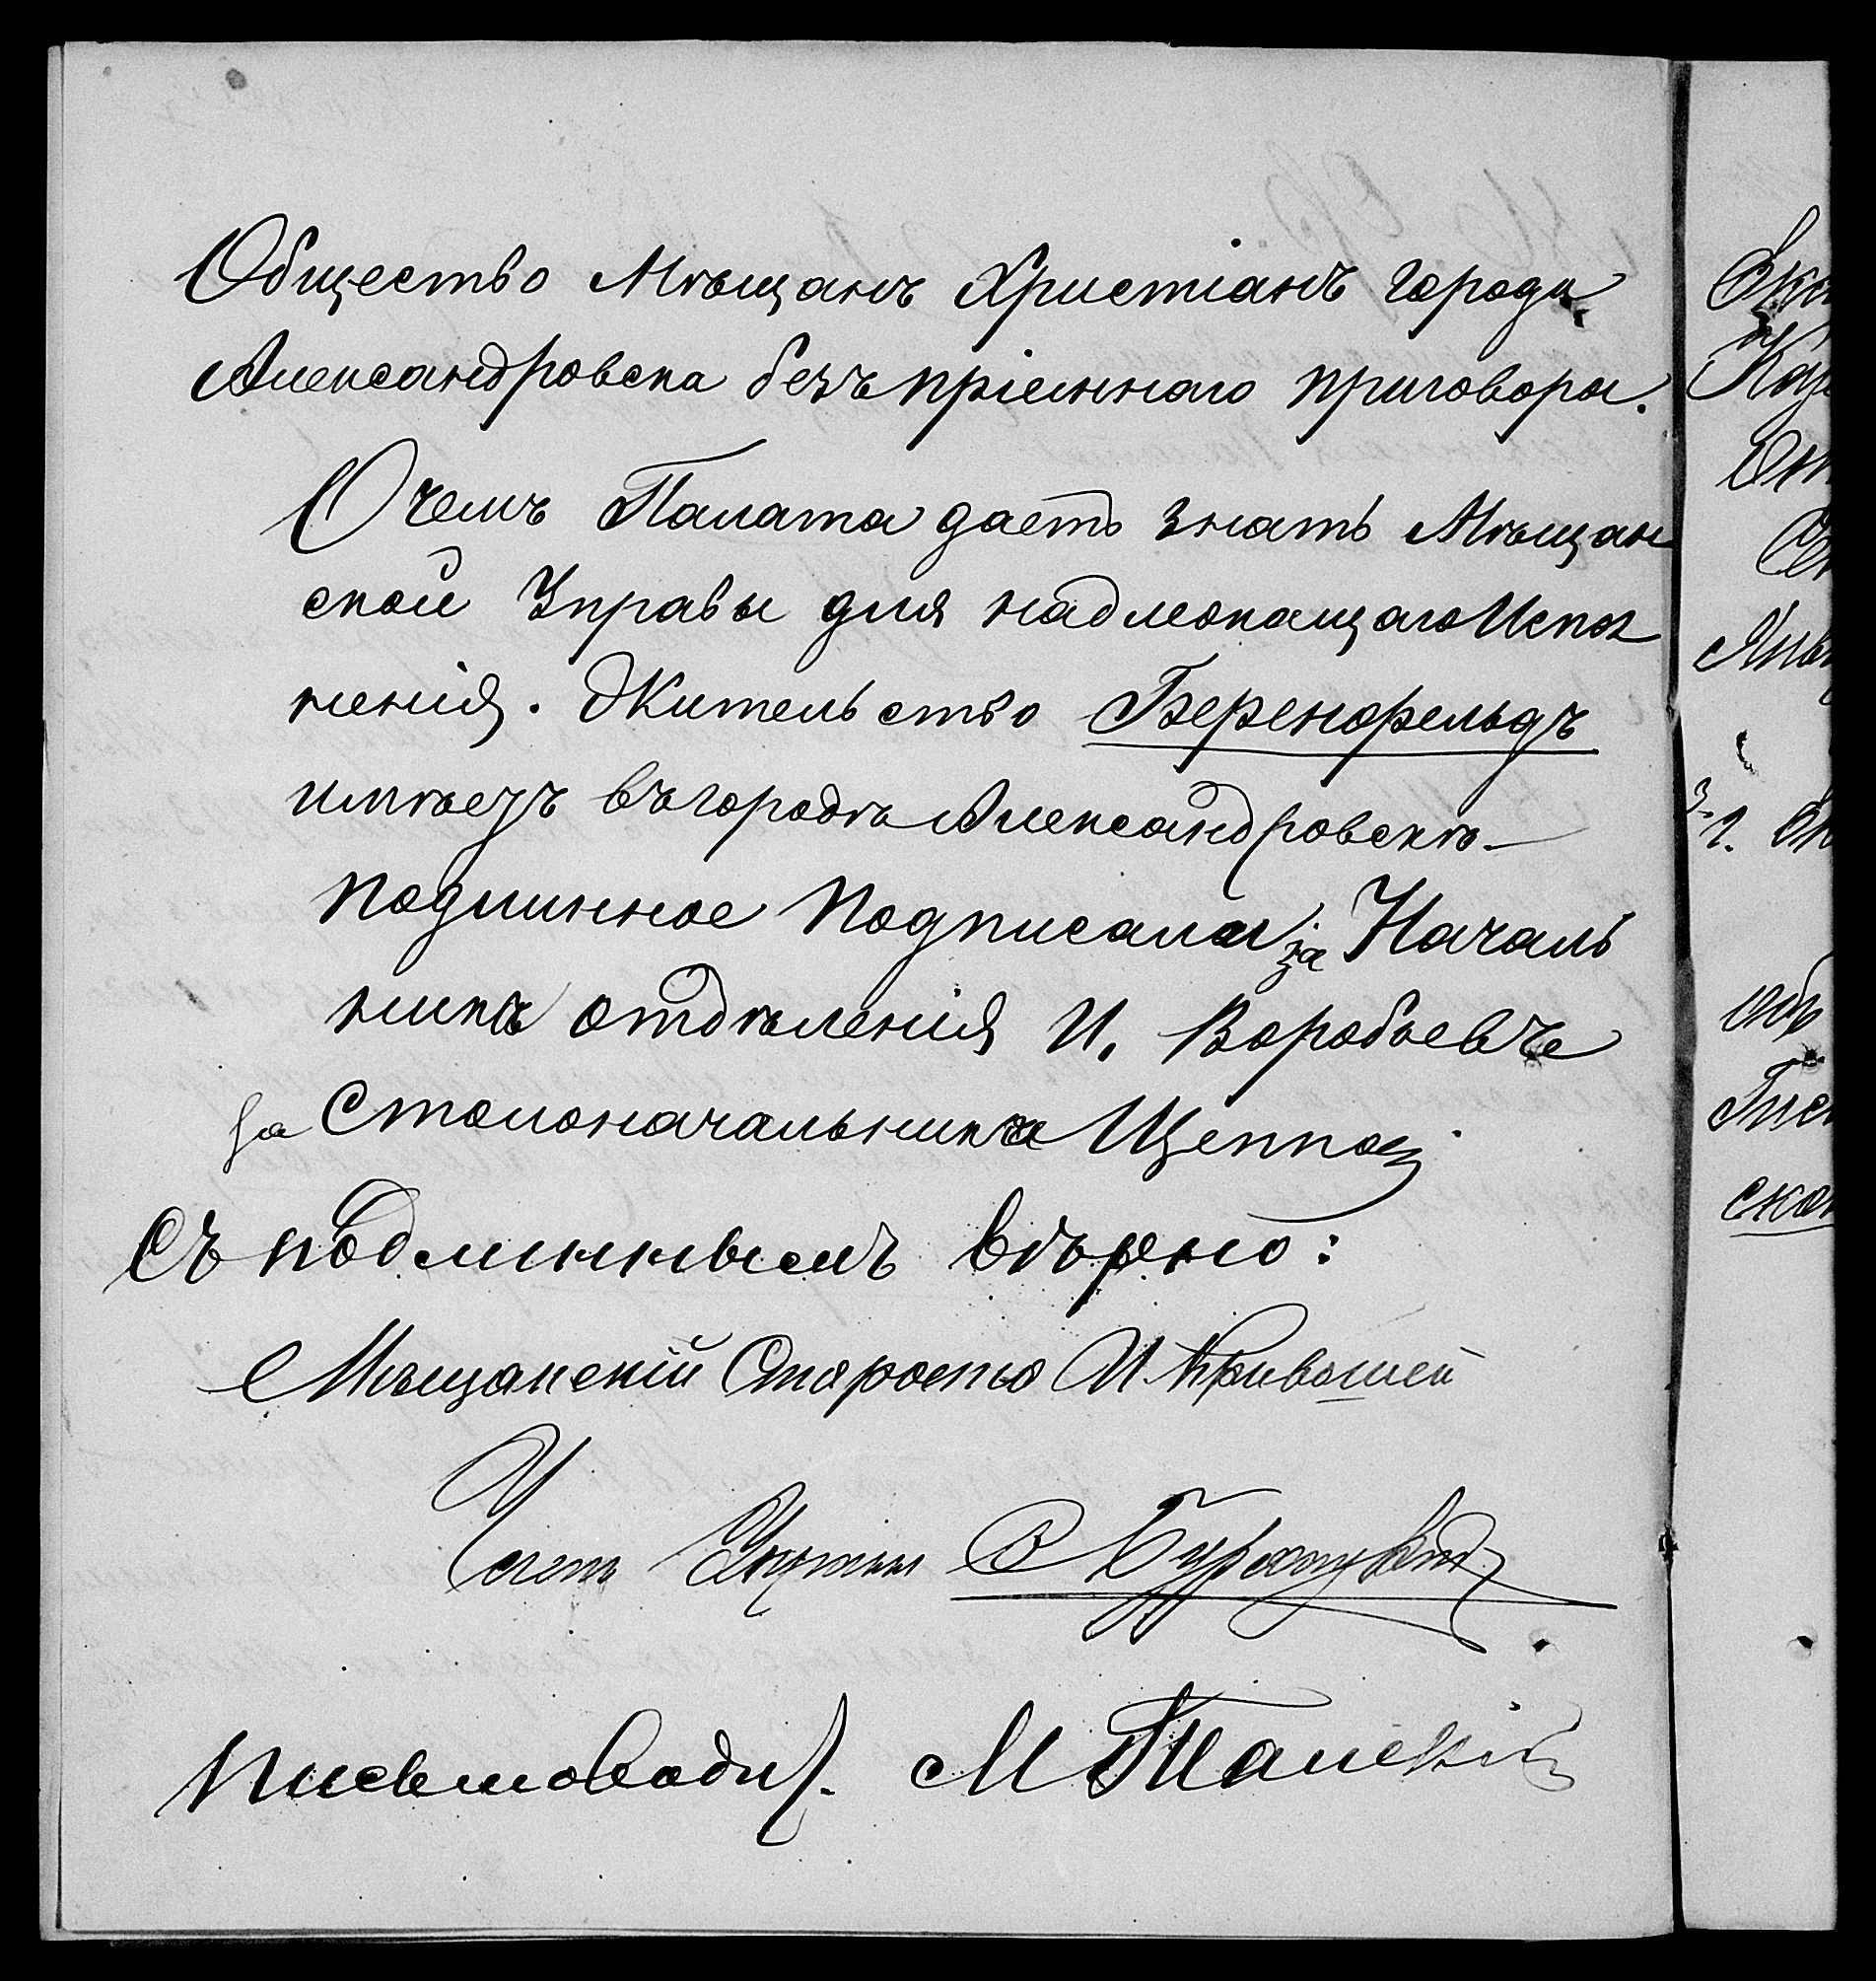 Общество Мѣщанъ Христіанъ города
Александровска безъ пріемнаго приговора.
О чемъ Палата даетъ знать Мѣщан
ской Управы для надлежащаго Испол
ненія. Жительство Беренфельдъ
имѣетъ въ городѣ Александровскѣ
Подлинное Подписали: за Началь
ника отдѣленія И. Воробьевъ
за Столоначальника
Съ подлиннымъ вѣрно:
Мѣщанскій Староста И. Кривошей
Членъ Управы
Письмоводит.